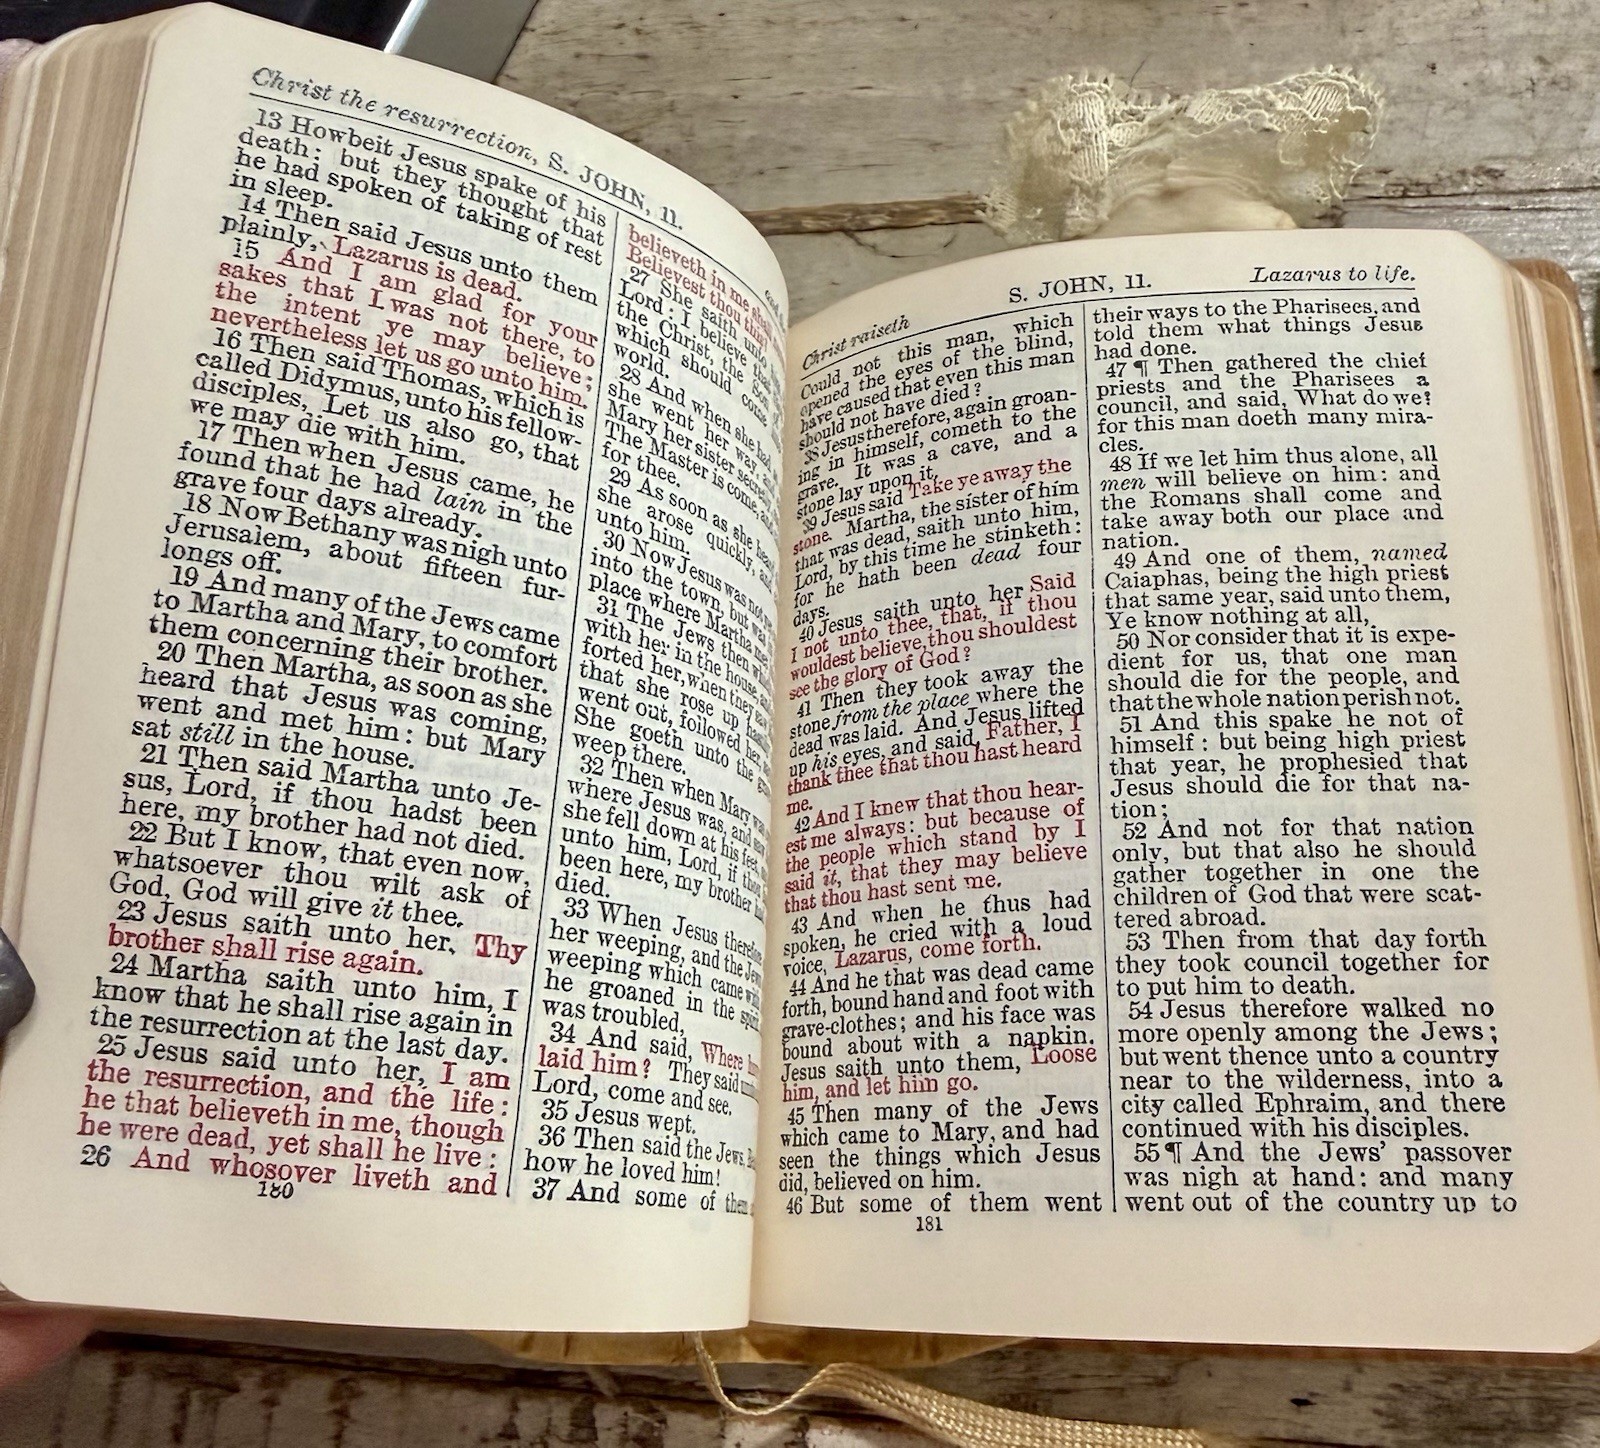 Christ the resurrection, S. JOHN, 11.
13 Howbeit Jesus spake of his
death: but they thought that
he had spoken of taking of rest
in sleep.
14 Then said Jesus unto them
plainly, Lazarus is dead.
15 And I am glad for your
sakes that I was not there, to
the intent ye may believe;
nevertheless let us go unto him.
16 Then said Thomas, which is
called Didymus, unto his fellow-
disciples, Let us also go, that
we may die with him.
17 Then when Jesus came, he
found that he had lain in the
grave four days already.
18 Now Bethany was nigh unto
Jerusalem, about fifteen fur-
longs off.
19 And many of the Jews came
to Martha and Mary, to comfort
them concerning their brother.
20 Then Martha, as soon as she
heard that Jesus was coming,
went and met him: but Mary
sat still in the house.
21 Then said Martha unto Je-
sus, Lord, if thou hadst been
here, my brother had not died.
22 But I know, that even now,
whatsoever thou wilt ask of
God, God will give it thee.
23 Jesus saith unto her, Thy
brother shall rise again.
24 Martha saith unto him, I
know that he shall rise again in
the resurrection at the last day.
25 Jesus said unto her, I am
the resurrection, and the life:
he that believeth in me, though
he were dead, yet shall he live:
26 And whosover liveth and
180
believeth in me shall
Believest thou this?
27 She saith unto
Lord: I believe that
the Christ, the Son
which should come
world.
28 And when she had
she went her way, and
Mary her sister
The Master is come, and
for thee.
29 As soon as she heard
she arose quickly, and
unto him.
30 Now Jesus was not
into the town, but was
place where Martha met
31 The Jews then
with her in the house, and
forted her, when they saw
that she rose up
went out, followed her,
She goeth unto the
weep there.
32 Then when Mary was
where Jesus was, and
she fell down at his feet,
unto him, Lord, if thou
been here, my brother
died.
33 When Jesus therefore
her weeping, and the Jews
weeping which came with
he groaned in the spirit
was troubled,
34 And said, Where
laid him? They said
Lord, come and see.
35 Jesus wept.
36 Then said the Jews,
how he loved him!
37 And some of them
Christ raiseth S. JOHN, 11. Lazarus to life.
Could not this man, which
opened the eyes of the blind,
have caused that even this man
should not have died?
38 Jesus therefore, again groan-
ing in himself, cometh to the
grave. It was a cave, and a
stone lay upon it.
39 Jesus said Take ye away the
stone. Martha, the sister of him
that was dead, saith unto him,
Lord, by this time he stinketh:
for he hath been dead four
days.
40 Jesus saith unto her Said
I not unto thee, that, if thou
wouldest believe, thou shouldest
see the glory of God?
41 Then they took away the
stone from the place where the
dead was laid. And Jesus lifted
up his eyes, and said, Father, I
thank thee that thou hast heard
me.
42 And I knew that thou hear-
est me always: but because of
the people which stand by I
said it, that they may believe
that thou hast sent me.
43 And when he thus had
spoken, he cried with a loud
voice, Lazarus, come forth.
44 And he that was dead came
forth, bound hand and foot with
grave-clothes; and his face was
bound about with a napkin.
Jesus saith unto them, Loose
him, and let him go.
45 Then many of the Jews
which came to Mary, and had
seen the things which Jesus
did, believed on him.
46 But some of them went
181
their ways to the Pharisees, and
told them what things Jesus
had done.
47 ¶ Then gathered the chief
priests and the Pharisees a
council, and said, What do we?
for this man doeth many mira-
cles.
48 If we let him thus alone, all
men will believe on him: and
the Romans shall come and
take away both our place and
nation.
49 And one of them, named
Caiaphas, being the high priest
that same year, said unto them,
Ye know nothing at all,
50 Nor consider that it is expe-
dient for us, that one man
should die for the people, and
that the whole nation perish not.
51 And this spake he not of
himself: but being high priest
that year, he prophesied that
Jesus should die for that na-
tion;
52 And not for that nation
only, but that also he should
gather together in one the
children of God that were scat-
tered abroad.
53 Then from that day forth
they took council together for
to put him to death.
54 Jesus therefore walked no
more openly among the Jews;
but went thence unto a country
near to the wilderness, into a
city called Ephraim, and there
continued with his disciples.
55 ¶ And the Jews' passover
was nigh at hand: and many
went out of the country up to